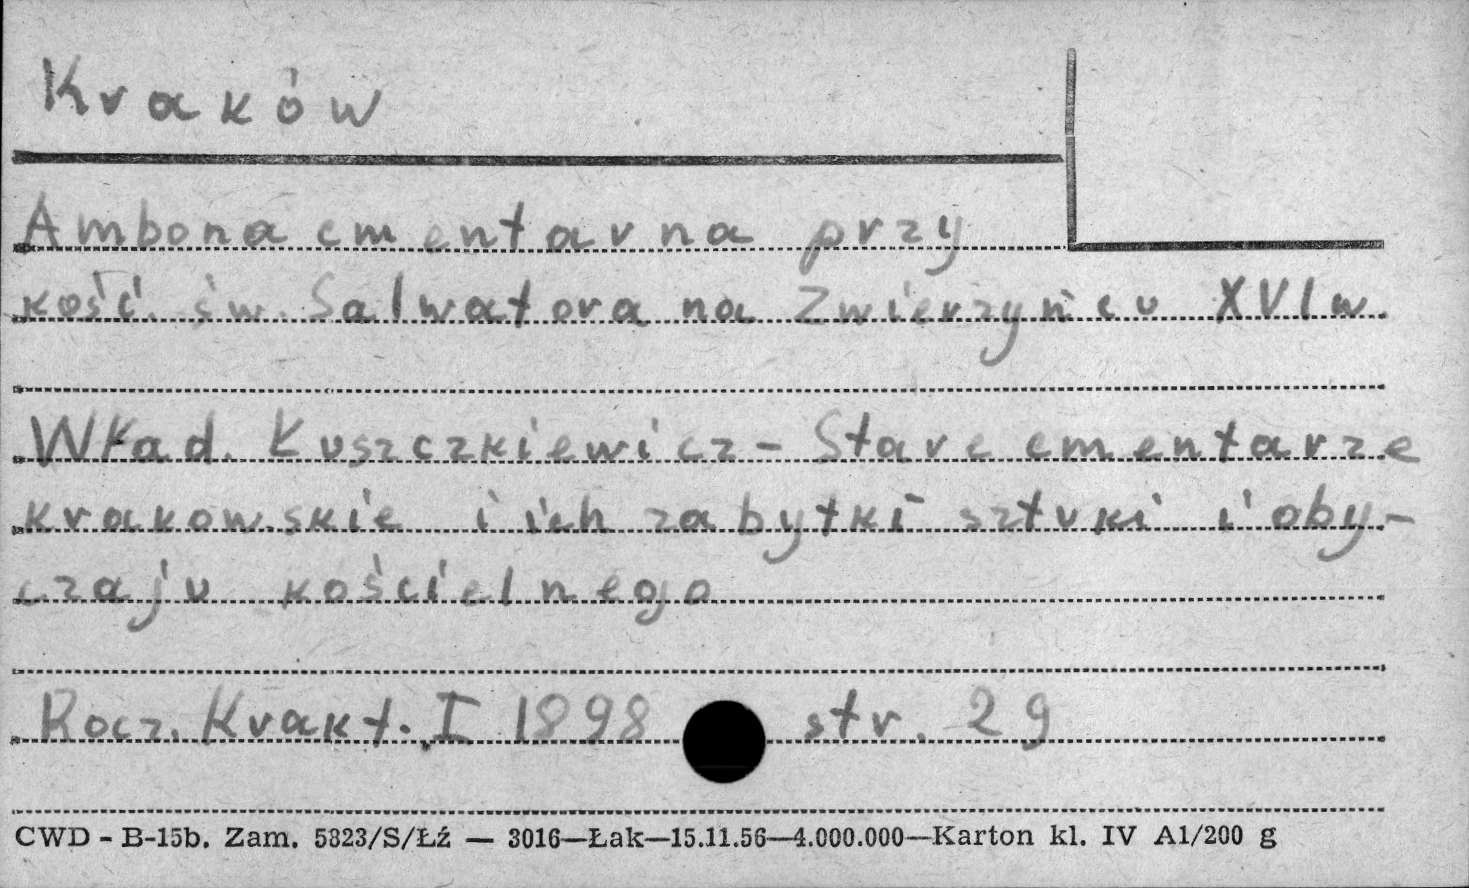 Kraków
Ambona cmentarna przy
kość. św. Salwatora na Zwierzyńcu XVI w.
Wład. Łuszczkiewicz - Stare cmentarze
krakowskie i ich zabytki sztuki i oby-
czaju kościelnego
Rocz. Krak t. I 1898 str. 29
CWD - B-15b. Zam. 5823/S/Łź — 3016—Łak—15.11.56—4.000.000—Karton kl. IV A1/200 g